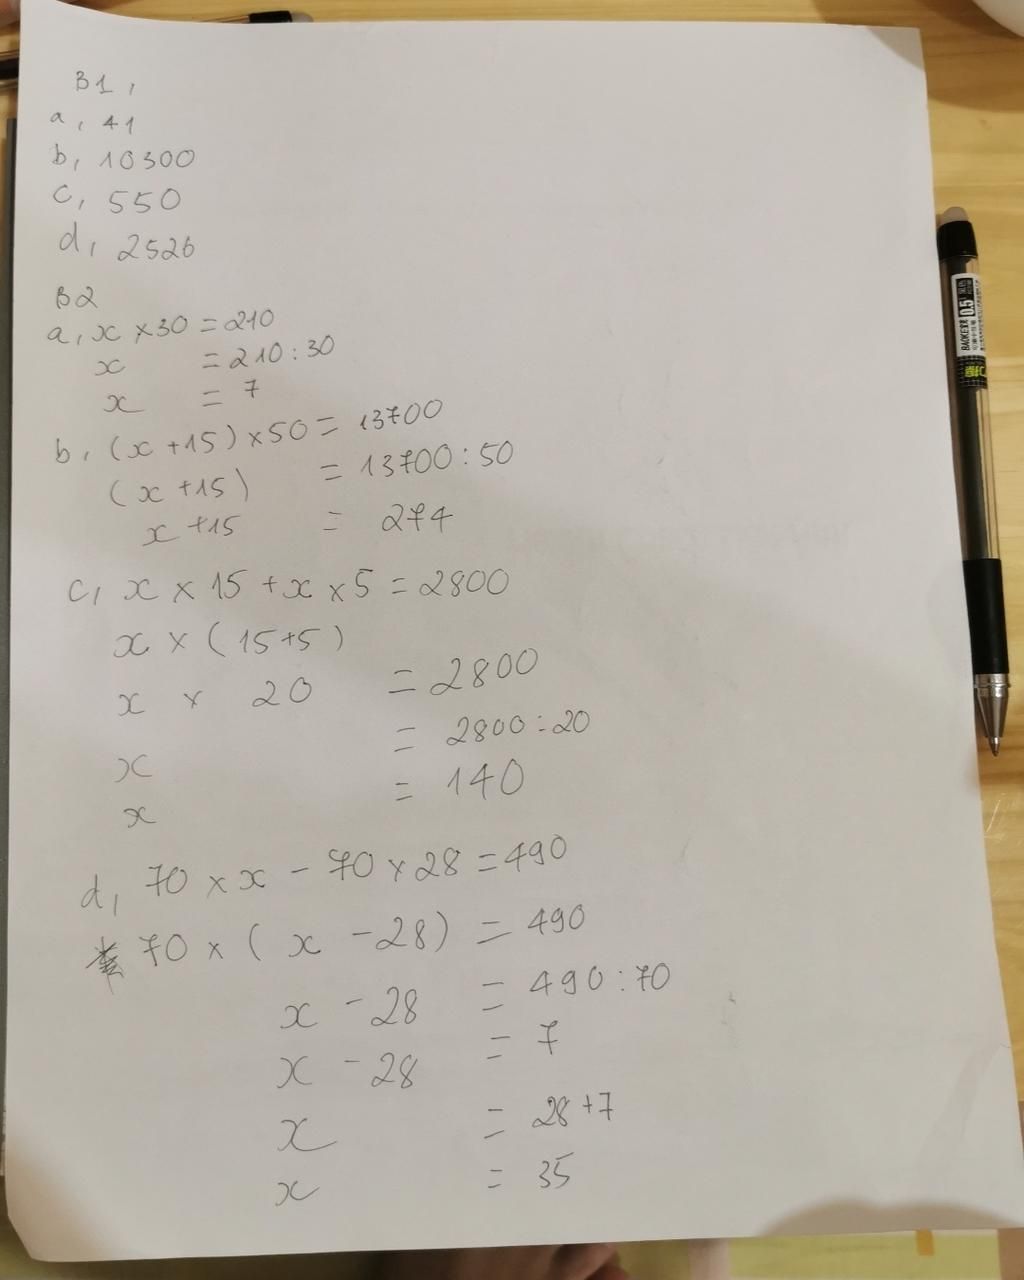 B1,
a, 41
b, 10300
c, 550
d, 2526
B2
a, x × 30 = 210
x = 210 : 30
x = 7
b, (x + 15) × 50 = 13700
(x + 15) = 13700 : 50
x + 15 = 274
c, x × 15 + x × 5 = 2800
x × (15 + 5)
x × 20 = 2800
x = 2800 : 20
x = 140
d, 70 × x - 70 × 28 = 490
70 × ( x - 28) = 490
x - 28 = 490 : 70
x - 28 = 7
x = 28 + 7
x = 35
BAOKE 0.5